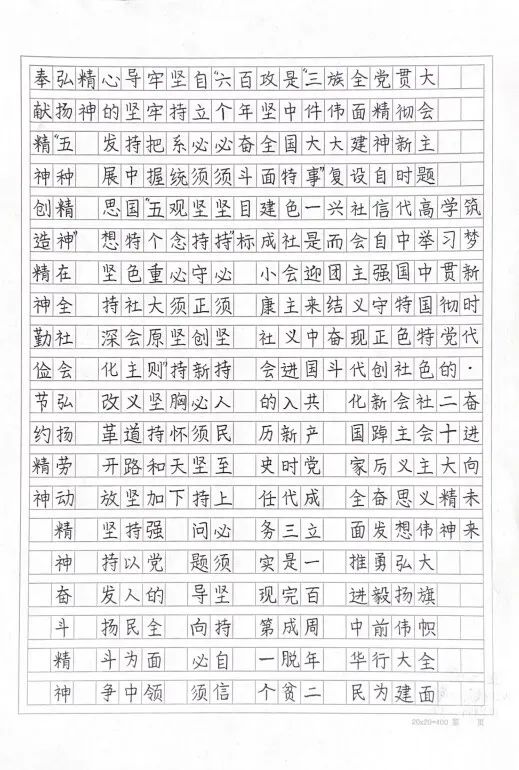 筑梦新时代·奋进向未来
学习贯彻党的二十大精神
大会主题高举中国特色社会主义伟大旗帜全面
贯彻新时代中国特色社会主义思想弘扬伟大建
党精神自信自强守正创新踔厉奋发勇毅前行为
全面建设社会主义现代化国家全面推进中华民
族伟大复兴而团结奋斗
"三件大事"一是迎来中国共产党成立一百周年二
是中国特色社会主义进入新时代三是完成脱贫
攻坚全面建成小康社会的历史任务实现第一个
百年奋斗目标
"六个必须坚持"必须坚持人民至上必须坚持自信
自立必须坚持守正创新必须坚持问题导向必须
坚持系统观念必须胸怀天下
牢牢把握"五个重大原则"坚持和加强党的全面领
导坚持中国特色社会主义道路坚持以人民为中
心的发展思想坚持深化改革开放坚持发扬斗争
精神
弘扬"五种精神"在全社会弘扬劳动精神奋斗精神
奉献精神创造精神勤俭节约精神
20×20=400 第 页